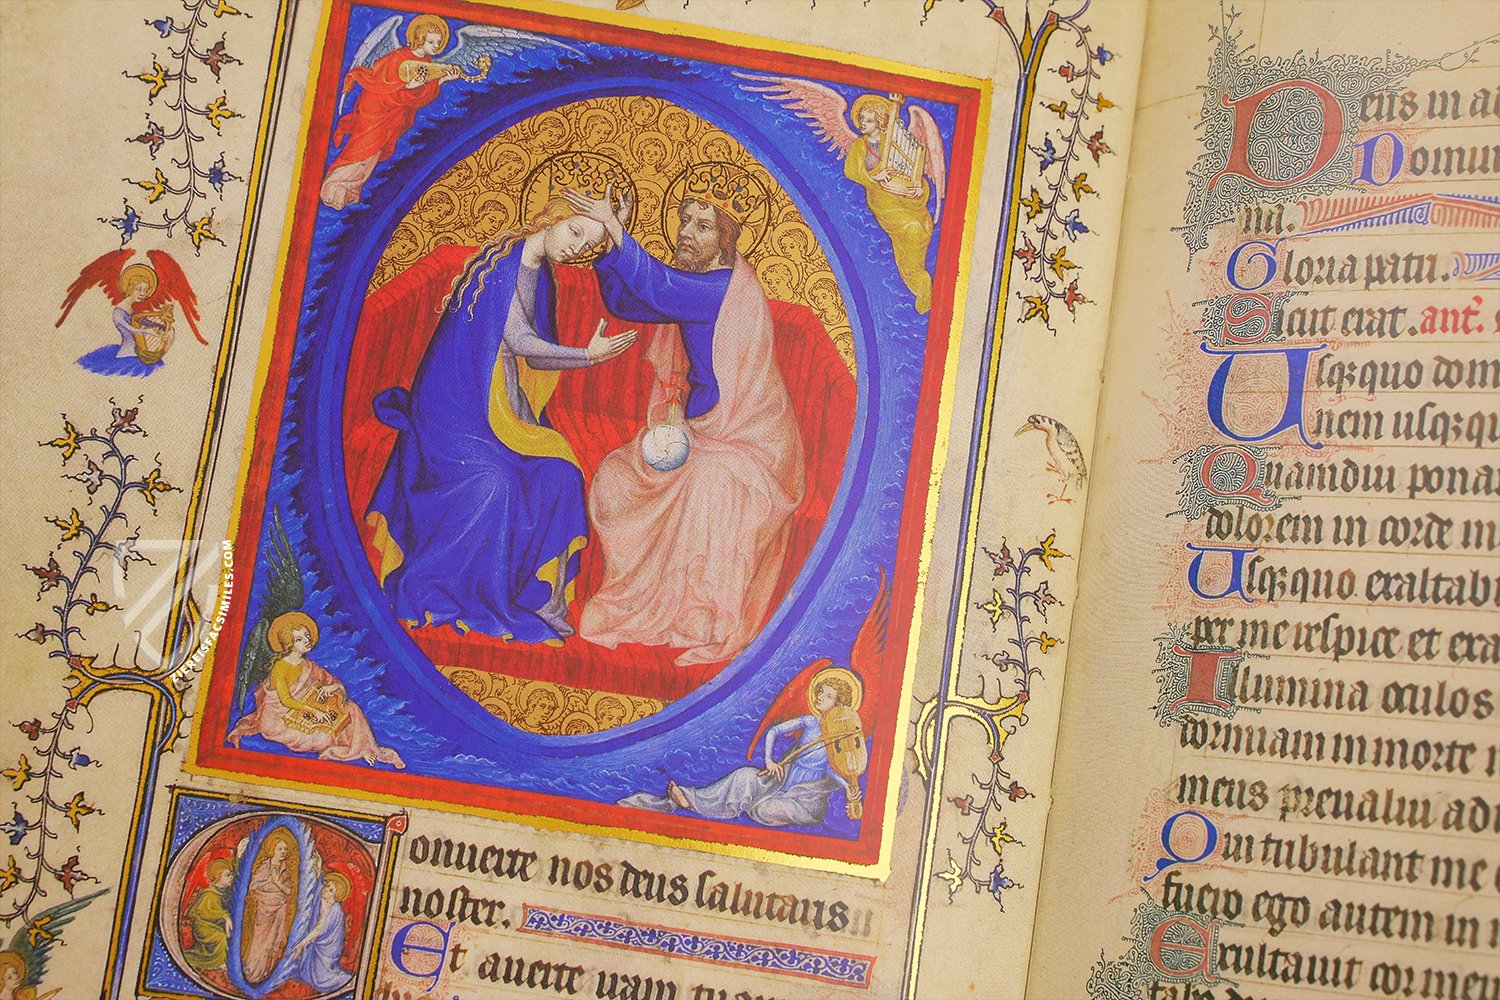 onuerte nos deus salutaris
noster.
Et auerte iram tuam
Deus in ad
Domin
na.
Gloria patri.
Sicut erat. ant.
Usq;quo dom
nem usq;qu
Quamdiu ponam
dolorem in corde m
Usq;quo exaltabi
per me respice et exa
Illumina oculos
dormiam in morte
meus preualui adu
Qui tribulant me
fuero ego autem in
Exultauit cor meu
ZIEREISFACSIMILES.COM